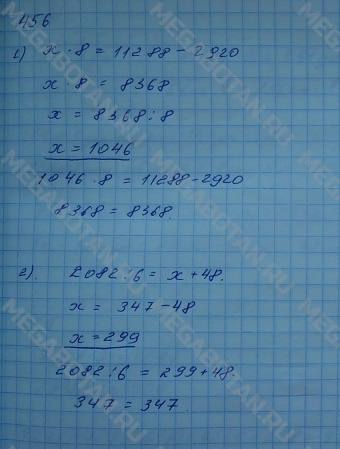 456
1) x · 8 = 11288 - 2920
x · 8 = 8368
x = 8368 : 8
x = 1046
1046 · 8 = 11288 - 2920
8368 = 8368.
2). 2082 : 6 = x + 48.
x = 347 - 48
x = 299
2082 : 6 = 299 + 48.
347 = 347.
MEGABOTAN.RU